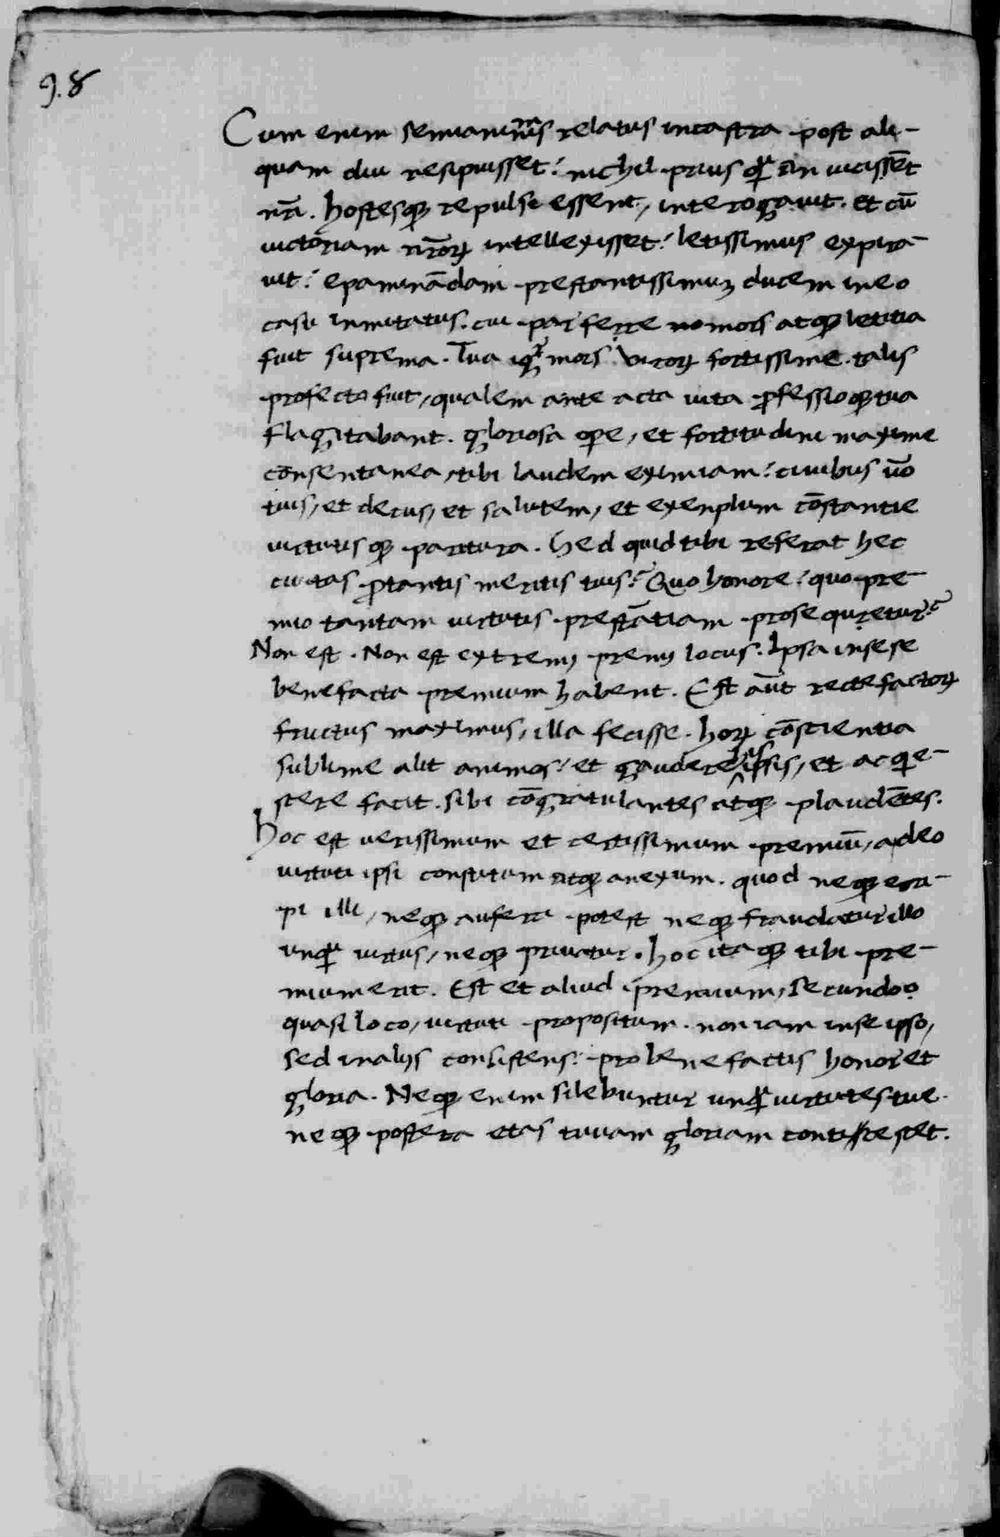 98
Cum enim semianimis relatus in castra post ali-
quam diu resipuisset: nichil prius qͣ an uicissēt
nr̄i. hostesqꝫ repulsi essent, interogauit. et cū
uictoriam nr̄orꝝ intellexisset: letissimus expira-
uit: epaminādam prestantissimuꝫ ducem in eo
casu inmitatus. cui par ferre no mors atqꝫ letitia
fuit suprema. Tua igͣ mors uirorꝝ fortissime talis
profecto fuit, qualem ante acta uita ꝓfessioqꝫ tua
flagitabant. gloriosa ope, et fortitudini maxime
cōnsentanea, tibi laudem eximiam: ciuibus uō
tuis, et decus, et salutem, et exenplum cōstantie
uirtutisqꝫ paritura. Sed quid tibi referat hec
ciuitas ꝓ tantis meritis tuis? Quo honore? quo pre-
mio tantam uirtutis prestātiam prosequretur?
Non est. Non est extremꝰ premij locus. Ipsa in sese
benefacta premium habent. Est aūt recte factorꝝ
fructus maximus, illa fecisse. horꝝ cōscientia
sublime alit animos: et gaudere his ipsis, et acqie-
scere facit. sibi cōgratulantes atqꝫ plaudētes.
hoc est uerissimum et certissimum premiū, adeo
uirtuti ipsi constitutum atqꝫ anexum. quod neqꝫ eri-
pi illi, neqꝫ auferri potest neqꝫ fraudatur illo
unqͣ uirtus, neqꝫ priuatur. hoc itaqꝫ tibi pre-
mium erit. Est et aliud premium, secundo
quasi loco, uirtuti propositum. non iam in se ipso,
sed in alijs consistens: pro benefactis honor et
gloria. Neqꝫ enim silebuntur unqͣ uirtutes tue.
neqꝫ postera etas tuuam gloriam conticescet.